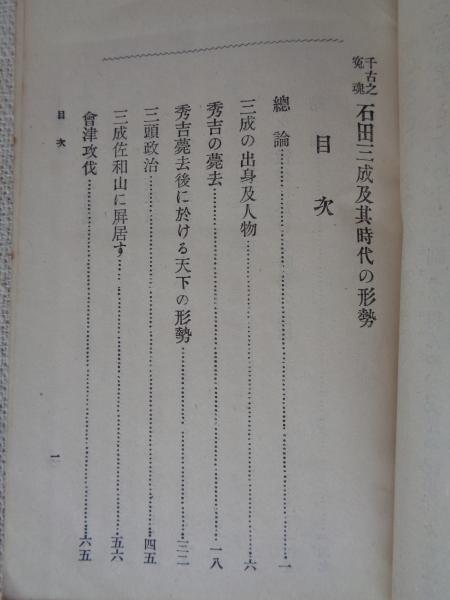 千古之冤魂 石田三成及其時代の形勢
目次
總論……一
三成の出身及人物……六
秀吉の薨去……一八
秀吉薨去後に於ける天下の形勢……三二
三頭政治……四五
三成佐和山に屏居す……五六
會津攻伐……六五
目次
一